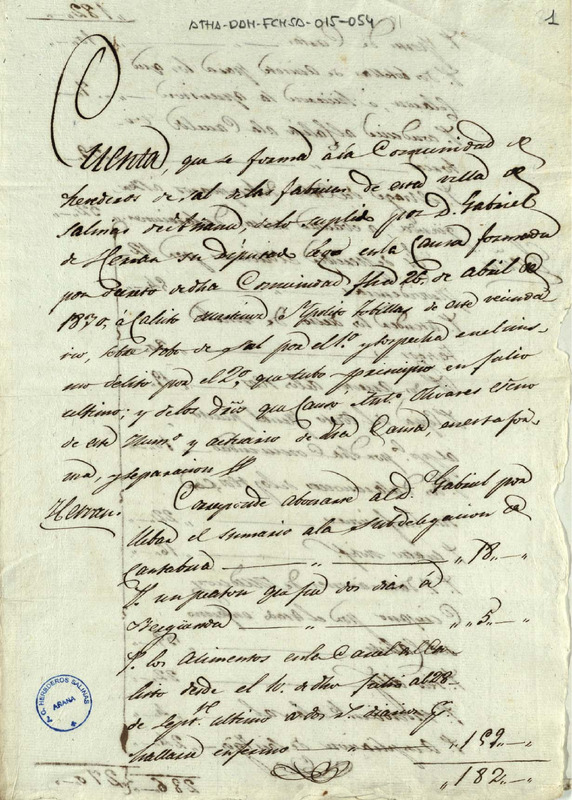 ATHA-DAH-FCHSD-015-054
1
Cuenta, que se forma á la Comunidad de
herederos de sal de las fabricas de esta villa de
Salinas de Añana, de lo suplido por D. Gabriel
de Herran su Diputado Lego en la Causa formada
por Decreto de dha Comunidad fha 26,, de Abril de
1830, á Calisto Martinez é Ypolito Tobillas de este vecinda
rio, sobre robo de sal por el 1º y sospecha en el mis-
mo delito por el 2º, que tubo principio en Julio
ultimo; y de los dros que Causo Antº Olivares Esno
de este Numº y actuario de dha Causa, en esta for-
ma, y separacion
Herran.
Corresponde abonarse al D. Gabriel por
llebar el sumario a la Subdelegacion de
Cantabria — " — " 18.. — "
Y. un peaton que fue dos dias á
Berguenda — " — " 5.. — "
Y. los Alimentos en la Carcel al Ca-
listo desde el 10. de dho Julio al 28
de Septe ultimo a dos Rs. diarios
hallarse enfermo — " 159.. — "
" 182.. — "
T. G. HEREDEROS SALINAS
AÑANA